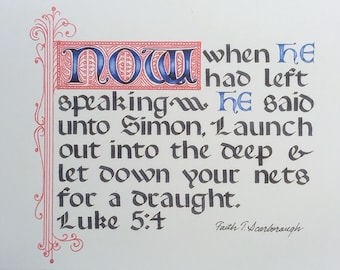 NOW when HE
had left
speaking HE said
unto Simon, Launch
out into the deep &
let down your nets
for a draught.
Luke 5:4
Faith T. Scarborough